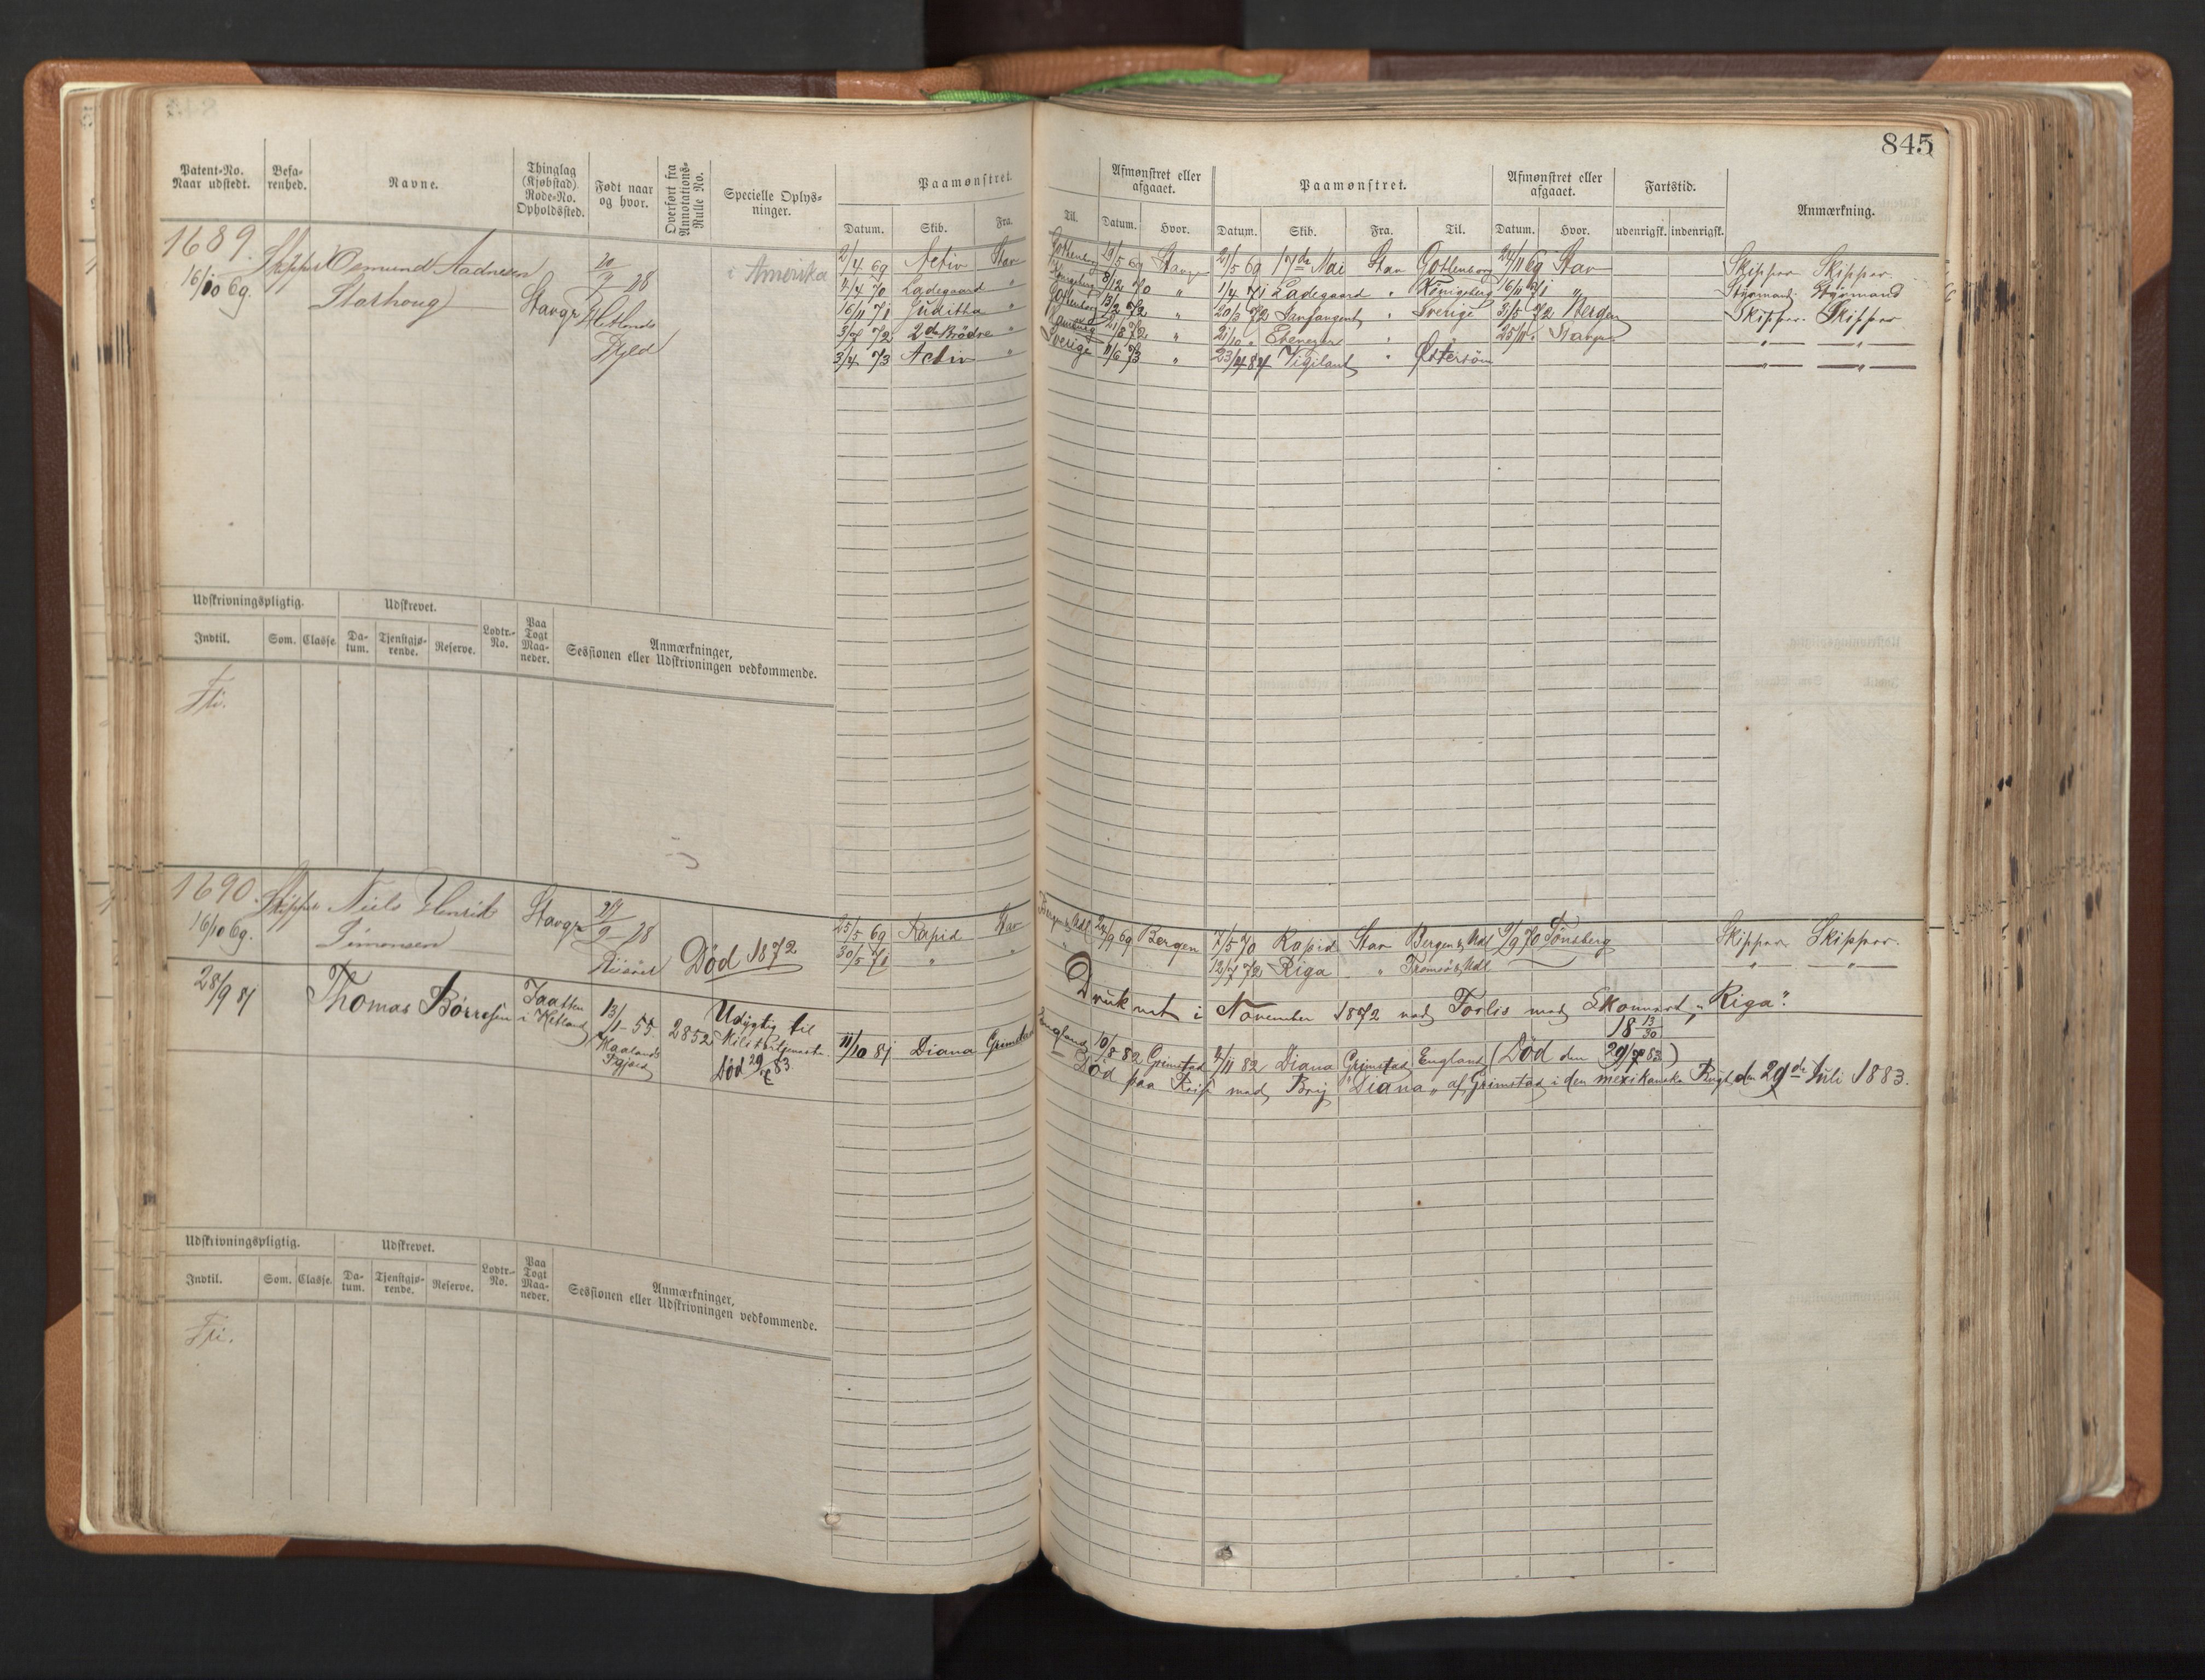 845
Patent-No. Naar udstedt.
Befarenhed.
Navne.
Thinglag (Kjøbstad) Rode-No. Opholdssted.
Født naar og hvor.
Overført fra Annotations-Rulle No.
Specielle Oplysninger.
Paamønstret.
Datum. Skib. Fra. Til.
Afmønstret eller afgaaet.
Datum. Hvor.
Paamønstret.
Datum. Skib. Fra. Til.
Afmønstret eller afgaaet.
Datum. Hvor.
Fartstid.
udenrigsk. indenrigsk.
Anmærkning.
1689.
16/10 69.
Skipper Osmund Aadnesen
Stavgr
28
Hetlands
Fjeld
i Amerika
2/4 69 Activ Stav Gottenborg 19/5 69 Stavgr 21/5 69 17de Mai Stav Gottenborg 24/11 69 Stav Skipper Skipper.
4/4 70 Ladegaard " 8/12 70 " 1/4 71 Ladegaard " Königsberg 16/11 71 " Styrmand Styrmand
16/11 71 Juditha " Gottenborg 13/2 72 " 20/3 72 " Sverige 31/5 72 Bergen Skipper. Skipper
3/7 72 2de Brödre " 21/8 72 " 21/10 " Ebenezer " 25/11 " Stavgr " "
3/4 73 Activ " Sverige 11/6 73 " 23/4 84 Vigilant " Östersöen " "
Udskrivningspligtig.
Udskrevet.
Indtil. Som. Classe. Datum. Tjenstgjørende. Reserve. Lodtr.-No. Paa Togt Maaneder.
Anmærkninger,
Sessionen eller Udskrivningen vedkommende.
Fri.
1690.
16/10 69.
Skipper Niels Henrik
Simonsen
Stavgr
28
Død 1872
25/5 69 Rapid Stav Bergen & Udl 24/9 69 Bergen 7/5 70 Rapid Stav Bergen & Udl 9/9 70 Tønsberg Skipper Skipper.
30/5 71 " " " 12/7 72 Riga " Tromsø & Udl " "
Druknet i November 1872 ved Forlis med Skonnert "Riga".
28/9 81
Thomas Børresen
Jaatten
i Hetland
13/1 55
2852
Udygtig til
Militærtjeneste
Død 29/7 83
11/10 81 Diana Grimstad England 10/8 82 Grimstad 4/11 82 Diana Grimstad England (Død den 29/7 83)
18 13/30
Død paa Reise med Brig "Diana" af Grimstad i den mexikanske Bugt den 29de Juli 1883.
Udskrivningspligtig.
Udskrevet.
Indtil. Som. Classe. Datum. Tjenstgjørende. Reserve. Lodtr.-No. Paa Togt Maaneder.
Anmærkninger,
Sessionen eller Udskrivningen vedkommende.
Fri.